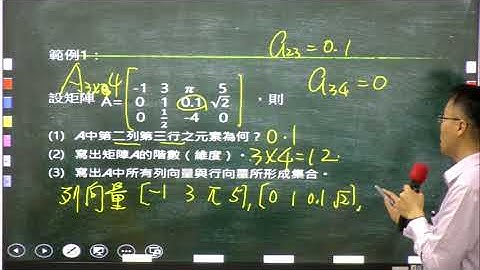 範例1：
a₂₃ = 0.1
A₃ₓ₄
a₃₄ = 0
設矩陣 A= [ -1 3 π 5
0 1 0.1 √2
0 1/2 -4 0 ]，則
(1) A中第二列第三行之元素為何？ 0.1
(2) 寫出矩陣A的階數（維度）。 3×4=12
(3) 寫出A中所有列向量與行向量所形成集合。
列向量 [-1 3 π 5], [0 1 0.1 √2],